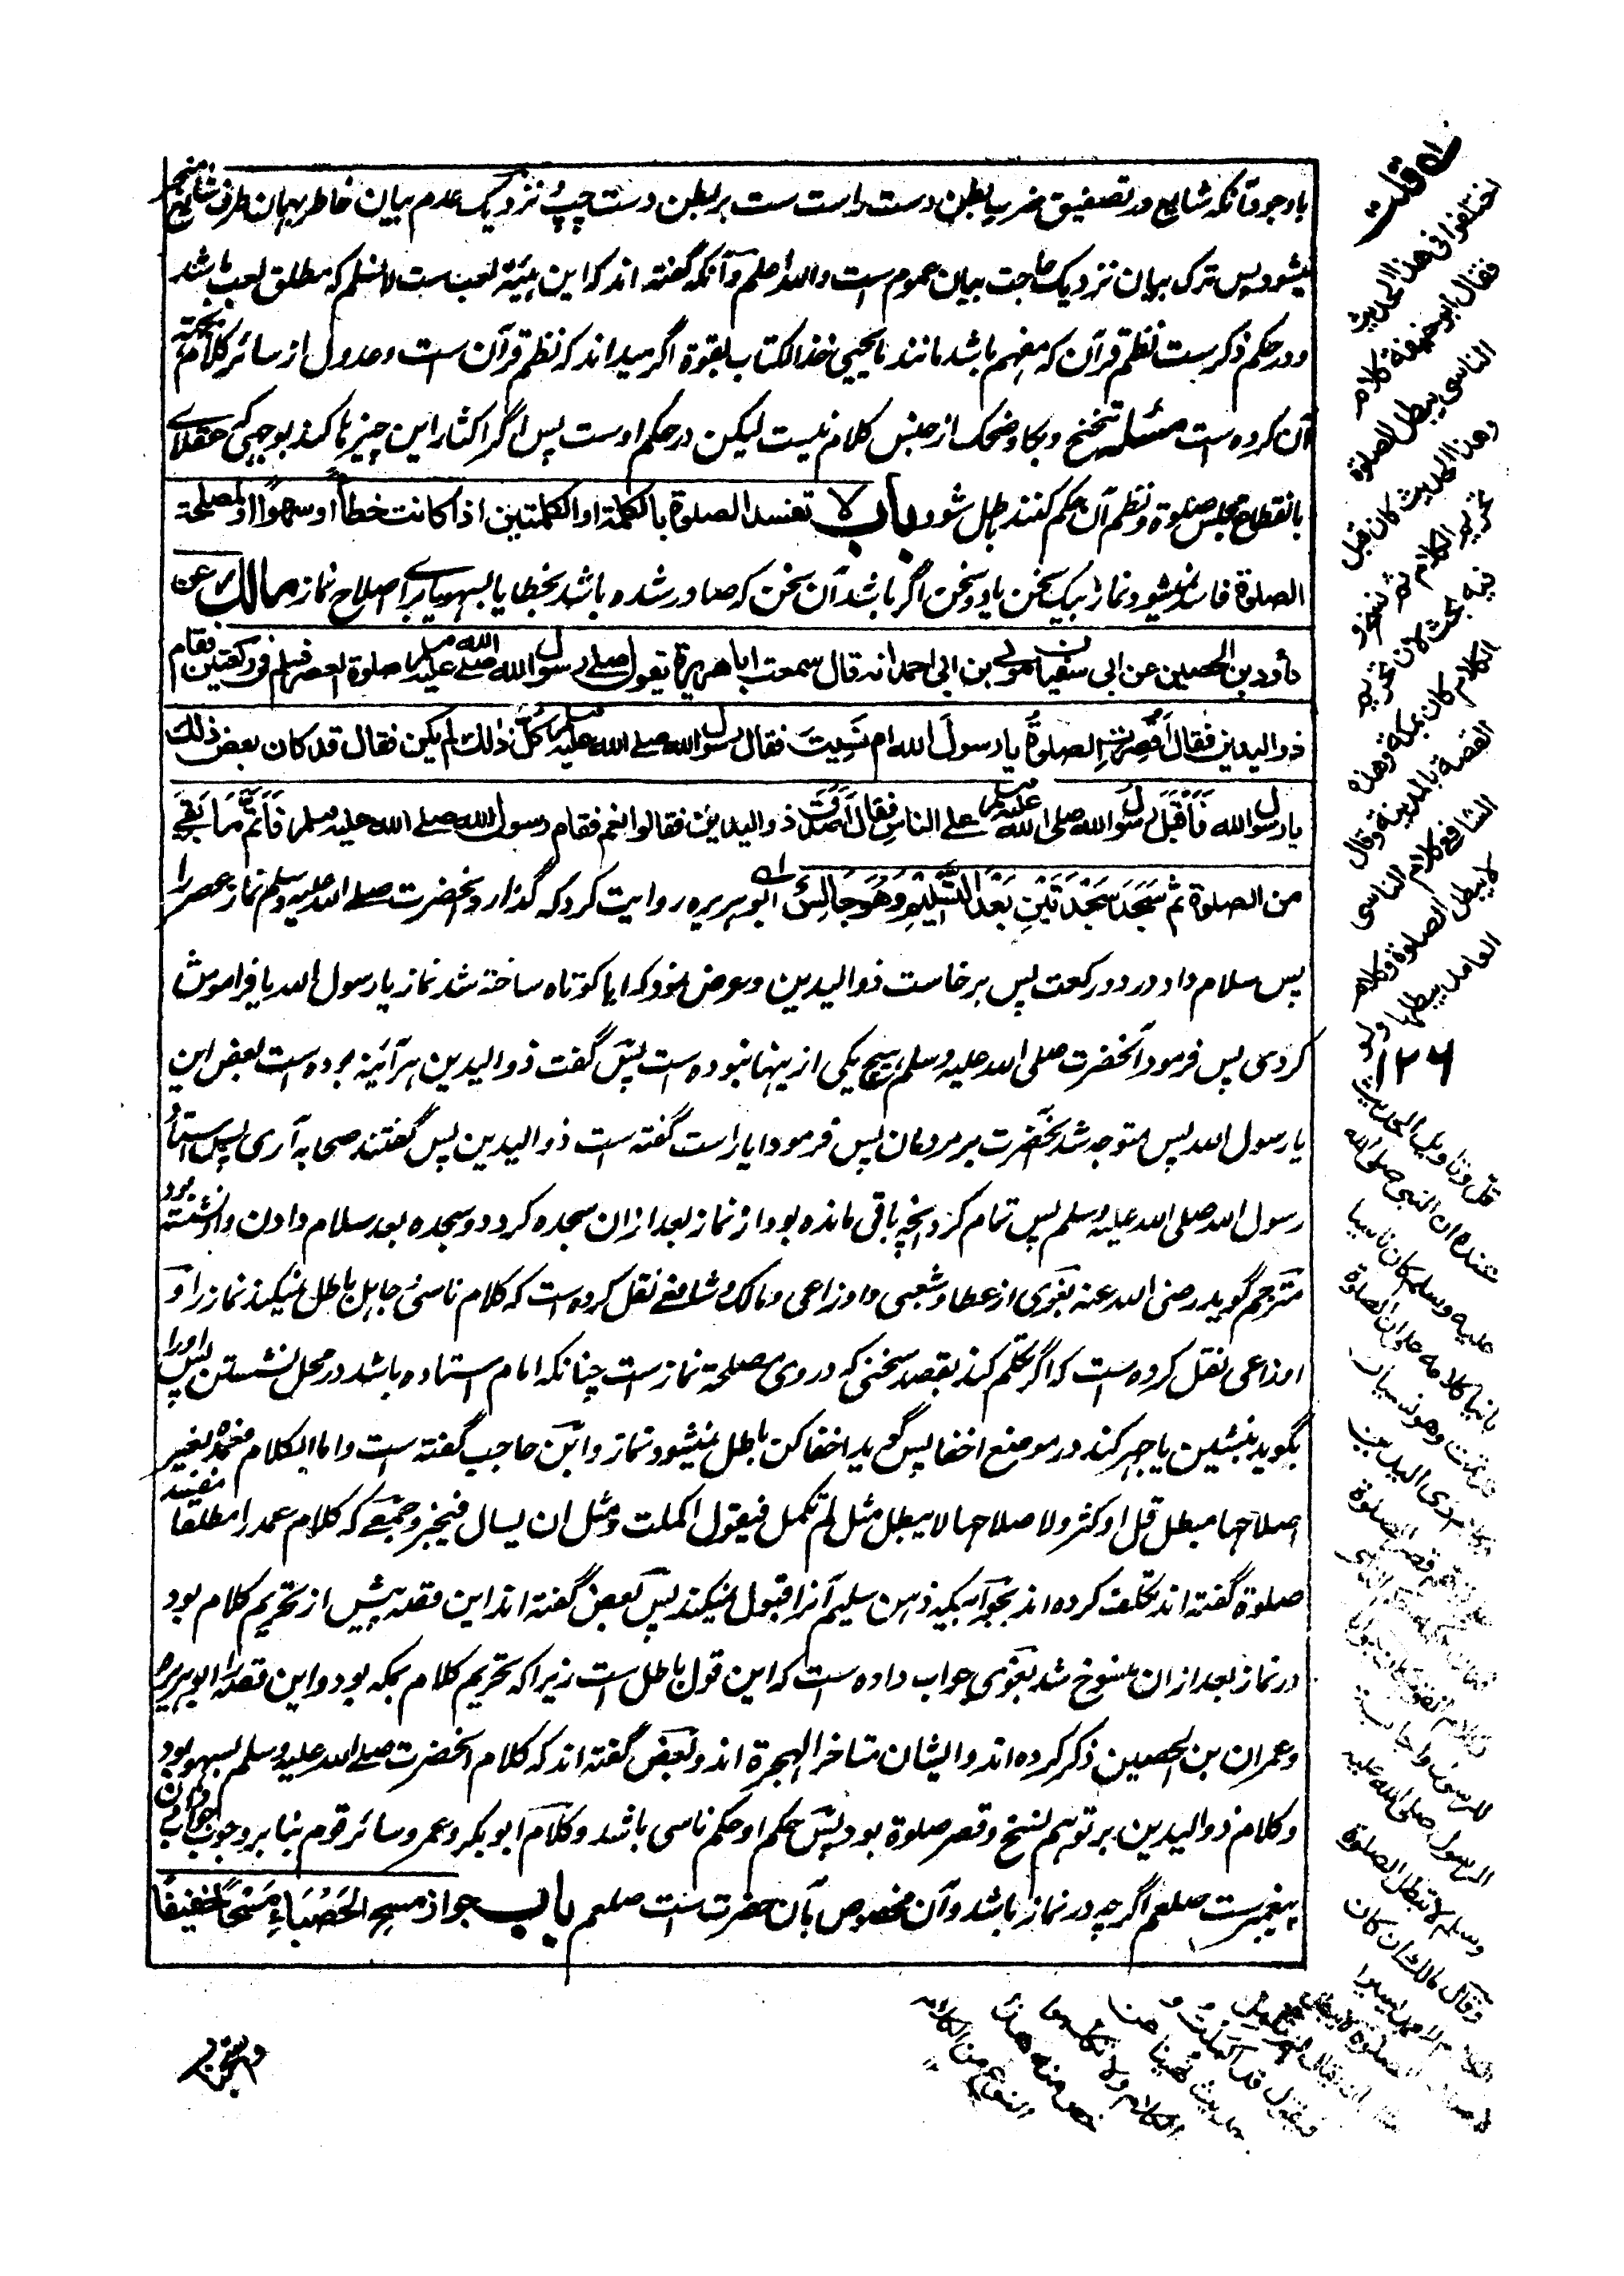 باوجودآنکه شایع در تصفیق ضرب بطن دست راست ست بر بطن دست چپ نزدیک عدم بیان خاطر بهمان طرف شایع منجر
میشود پس ترک بیان نزدیک حاجت بیان عموم است والله اعلم و آنکه گفته اند که این هیئة لعب ست لا نسلم که مطلق لعب باشد
و در حکم ذکرست نظم قرآن که مفهم باشد مانند یا یحیی خذ الکتاب بقوة اگر میداند که نظم قرآن ست و عدول از سائر کلام بجهة
آن کرده ست مسئله تنحنح و بکا و ضحک از جنس کلام نیست لیکن در حکم اوست پس اگر اکثار این چیزها کند بوجهی که عقلای
بانقطاع مجلس صلوة و نظم آن حکم کنند باطل شود باب لا تفسد الصلوة بالکلمة او الکلمتین اذا کانت خطأ او سهوا او لمصلحة
الصلوة فاسد نمیشود نماز بیک سخن یا دو سخن اگر باشد آن سخن که صادر شده باشد بخطا یا بسهو یا برای اصلاح نماز مالک عن
داود بن الحصین عن ابی سفیان مولی بن ابی احمد انه قال سمعت ابا هریرة یقول صلے رسول الله صلے الله علیه وسلم صلوة العصر فسلم فی رکعتین فقام
ذو الیدین فقال أقصرت الصلوة یا رسول الله ام نسیت فقال رسول الله صلے الله علیه وسلم کل ذلك لم یکن فقال قد کان بعض ذلك
یا رسول الله فأقبل رسول الله صلی الله علیه وسلم علے الناس فقال أصدق ذو الیدین فقالوا نعم فقام رسول الله صلے الله علیه وسلم فأتم ما بقی
من الصلوة ثم سجد سجدتین بعد التسلیم وهو جالس ابو هریره روایت کرد که گذارد آنحضرت صلے الله علیه وسلم نماز عصر را
پس سلام داد در دو رکعت پس برخاست ذو الیدین و عرض نمود که ایا کوتاه ساخته شد نماز یا رسول الله یا فراموش
کردی پس فرمود آنحضرت صلی الله علیه وسلم هیچ یکی ازینها نبوده ست پس گفت ذو الیدین هر آئینه بوده ست بعض این
یا رسول الله پس متوجه شد آنحضرت بر مردمان پس فرمود ایا راست گفته ست ذو الیدین پس گفتند صحابه آری پس استاد
رسول الله صلی الله علیه وسلم پس تمام کرد آنچه باقی مانده بود از نماز بعد ازان سجده کرد دو سجده بعد سلام دادن و او نشسته بود
مترجم گوید رضی الله عنه بغوی از عطا و شعبی و اوزاعی و مالک و شافعے نقل کرده ست که کلام ناسی و جاهل باطل نمیکند نماز را و
اوزاعی نقل کرده ست که اگر تکلم کند بقصد سخنی که در وی مصلحة نماز ست چنانکه امام استاده باشد در محل نشستن پس او را
بگوید بنشین یا جهر کند در موضع اخفا پس گوید اخفا کن باطل نمیشود نماز و ابن حاجب گفته ست و اما الکلام فعمده لغیر
اصلاحها مبطل قل او کثر ولاصلاحها لا یبطل مثل لم تکمل فیقول اکملت و مثل ان یسال فیخبر و جمعے که کلام عمد را مطلقا مفسد
صلوة گفته اند تکلف کرده اند بجوابیکه ذهن سلیم آنرا قبول نمیکند پس بعض گفته اند این قصه پیش از تحریم کلام بود
در نماز بعد ازان منسوخ شد بغوی جواب داده ست که این قول باطل است زیرا که تحریم کلام بمکه بود و این قصه را ابو هریره
و عمران بن الحصین ذکر کرده اند و ایشان متاخر الهجرة اند و بعض گفته اند که کلام آنحضرت صلے الله علیه وسلم بسهو بود
و کلام ذو الیدین بر توهم نسخ و قصر صلوة بود پس حکم او حکم ناسی باشد و کلام ابوبکر و عمر و سائر قوم بنا بر وجوب جواب
پیغمبر ست صلعم اگرچه در نماز باشد و آن مخصوص بآن حضرت ست صلعم باب جواز مسح الحصباء مسحا خفیفا
قلت
اختلفوا فی هذا الحدیث
فقال ابو حنیفة کلام
الناسی یبطل الصلوة
وهذا الحدیث کان قبل
تحریم الکلام ثم نسخ و
فیه بحث لان تحریم
الکلام کان بمکة وهذه
القصة بالمدینة وقال
الشافعی کلام الناسی
لا یبطل الصلوة وکلام
العامد یبطلها ولو
۱۲۶
قل وتاویل الحدیث
عنده ان النبی صلی الله
علیه وسلم کان ناسیا
بانیا کلامه علی ان الصلوة
تمت وهو نسیان
ذی الیدین
قصر الصلوة
للرسول واجابة
الرسول صلی الله علیه
وسلم لا تبطل الصلوة
وقال مالك ان کان
فیقول قد اکملت و